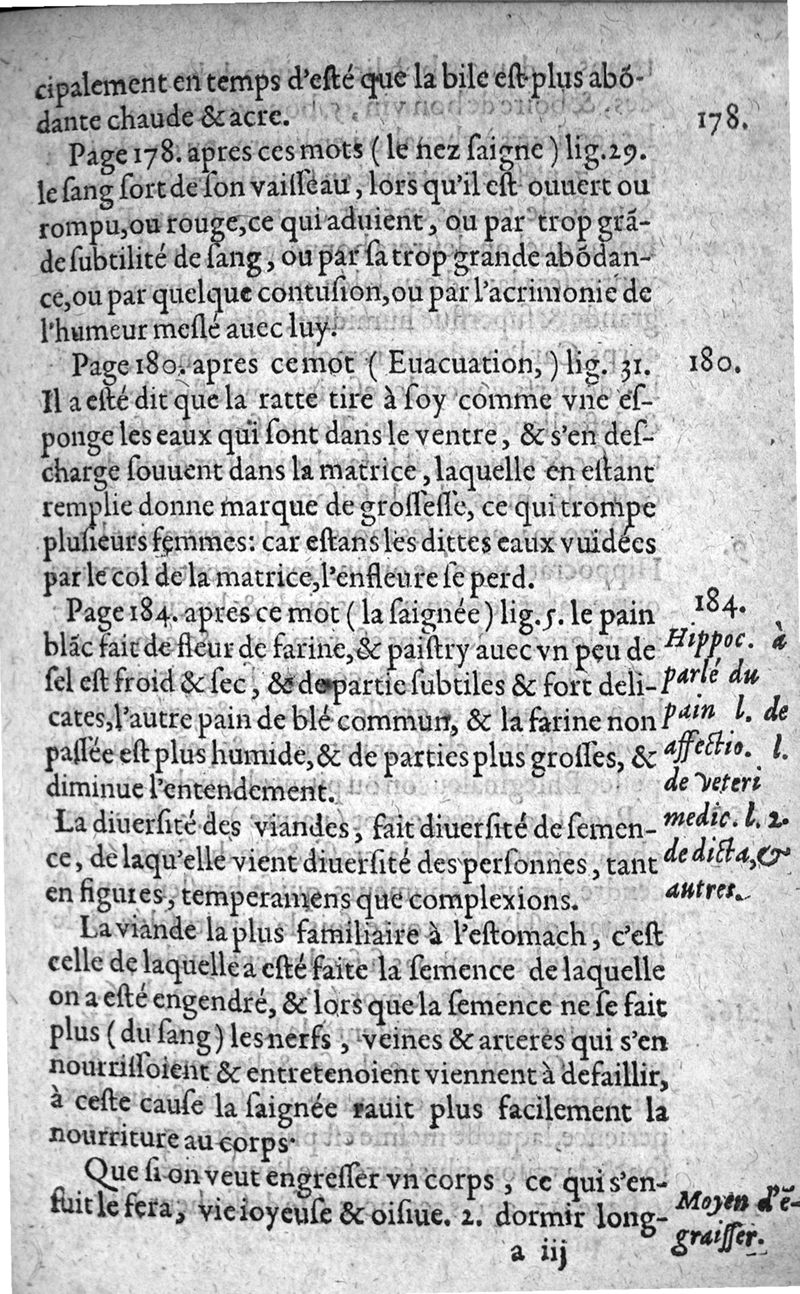 cipalement en temps d'eſté que la bile eſt plus abõ-
dante chaude & acre.
178.
Page 178. apres ces mots ( le nez ſaigne ) lig. 29.
le ſang ſort de ſon vaiſſeau, lors qu'il eſt ouuert ou
rompu, ou rouge, ce qui aduient, ou par trop grã-
de ſubtilité de ſang, ou par ſa trop grande abõdan-
ce, ou par quelque contuſion, ou par l'acrimonie de
l'humeur meſlé auec luy.
Page 180. apres ce mot ( Euacuation, ) lig. 31.
180.
Il a eſté dit que la ratte tire à ſoy comme vne eſ-
ponge les eaux qui ſont dans le ventre, & s'en deſ-
charge ſouuent dans la matrice, laquelle en eſtant
remplie donne marque de groſſeſſe, ce qui trompe
pluſieurs femmes: car eſtans les dittes eaux vuidées
par le col de la matrice, l'enfleure ſe perd.
Page 184. apres ce mot ( la ſaignée ) lig. 5. le pain
blãc fait de fleur de farine, & paiſtry auec vn peu de
ſel eſt froid & ſec, & de partie ſubtiles & fort deli-
cates, l'autre pain de blé commun, & la farine non
paſſée eſt plus humide, & de parties plus groſſes, &
diminue l'entendement.
184.
Hippoc. à
parlé du
pain l. de
affectio. l.
de veteri
medic. l. 2.
de dicta, &
autres.
La diuerſité des viandes, fait diuerſité de ſemen-
ce, de laqu'elle vient diuerſité des perſonnes, tant
en figures, temperamens que complexions.
La viande la plus familiaire à l'eſtomach, c'eſt
celle de laquelle a eſté faite la ſemence de laquelle
on a eſté engendré, & lors que la ſemence ne ſe fait
plus ( du ſang ) les nerfs, veines & arteres qui s'en
nourriſſoient & entretenoient viennent à defaillir,
à ceſte cauſe la ſaignée rauit plus facilement la
nourriture au corps.
Que ſi on veut engreſſer vn corps, ce qui s'en-
ſuit le fera, vie ioyeuſe & oiſiue. 2. dormir long-
Moyen d'ẽ-
graiſſer.
a iij